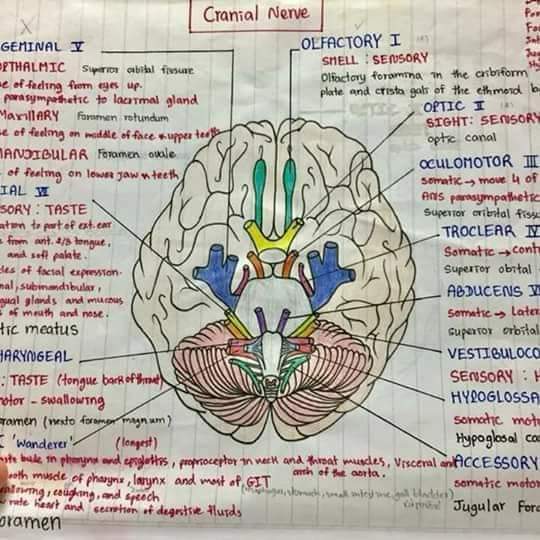 Cranial Nerve
GEMINAL V
OPTHALMIC Superior orbital fissure
se of feeling from eyes up.
parasympathetic to lacrimal gland
MAXILLARY Foramen rotundum
se of feeling on middle of face & upper teeth
MANDIBULAR Foramen ovale
of feeling on lower jaw & teeth
IAL VII
SORY : TASTE
ation to part of ext. ear
s from ant. 2/3 tongue,
and soft palate.
cles of facial expression.
nal, submandibular,
gual glands and mucous
s of mouth and nose.
tic meatus
HARYNGEAL
: TASTE (tongue back of throat)
otor - swallowing
oramen (next to foramen magnum)
X 'Wanderer' (longest)
in pharynx and epiglottis, proprioceptor in neck and throat muscles, Visceral and
arch of the aorta.
ooth muscle of pharynx, larynx and most of GIT
(esophagus, stomach, small intestine, gall bladder)
allowing, coughing, and speech
w rate heart and secretion of degestive fluids
oramen
OLFACTORY I
SMELL : SENSORY
Olfactory foramina in the cribiform
plate and crista gali of the ethmoid bo
OPTIC II
SIGHT: SENSORY
optic canal
OCULOMOTOR III
somatic → move 4 of
ANS parasympathetic
Superior oribital fissu
TROCLEAR IV
Somatic → cont
Superior orbital
ABDUCENS VI
somatic → Later
superior orbital
VESTIBULOCO
SENSORY : H
HYPOGLOSSA
somatic mot
Hypoglosal ca
ACCESSORY
somatic motor
Jugular Fora